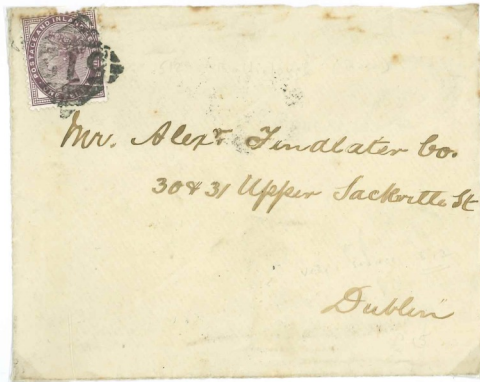 POSTAGE AND INLAND
Mr. Alexr. Findlater Co.
30&31 Upper Sackville St
Dublin